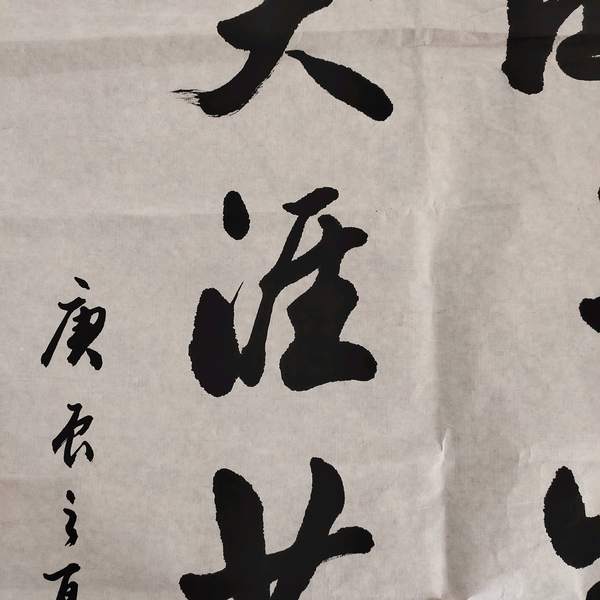 天涯共
庚辰之夏